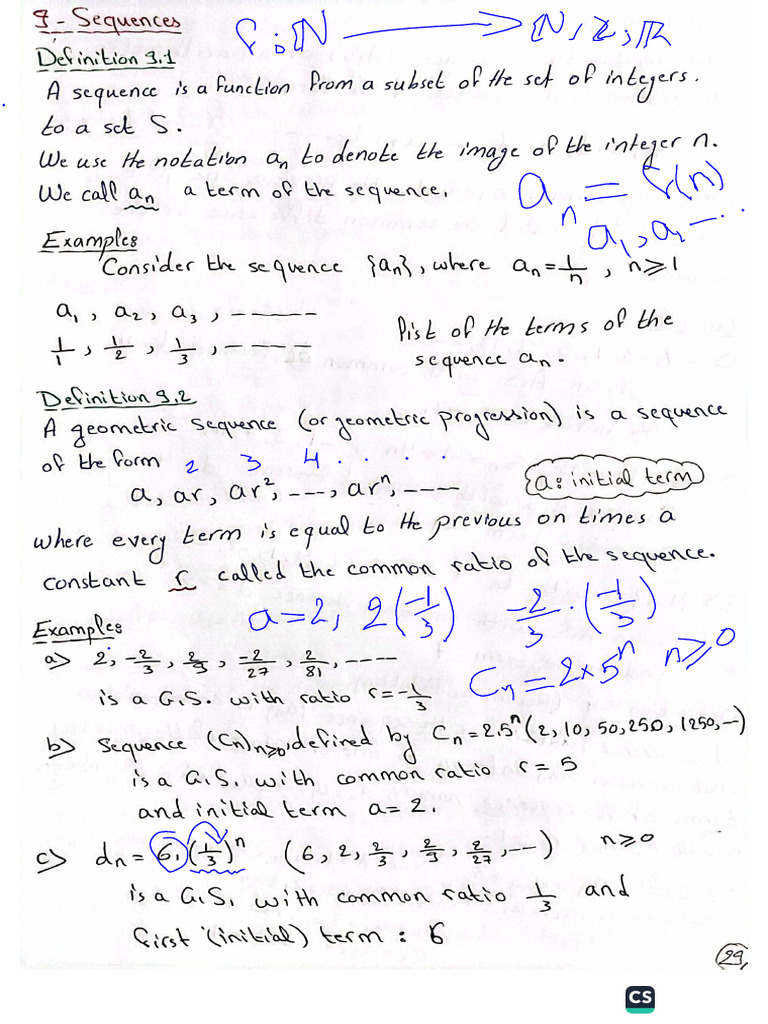 9- Sequences
f: ℕ ⟶ ℕ, ℤ, ℝ
Definition 9.1
A sequence is a function from a subset of the set of integers.
to a set S.
We use the notation aₙ to denote the image of the integer n.
We call aₙ a term of the sequence.
aₙ = f(n)
a₁, a₂ ...
Examples
Consider the sequence {aₙ}, where aₙ = 1/n , n ≥ 1
a₁ , a₂ , a₃ , -----
1/1 , 1/2 , 1/3 , -----
list of the terms of the
sequence aₙ.
Definition 9.2
A geometric sequence (or geometric progression) is a sequence
of the form
2 3 4 . . . .
a, ar, ar², ---, arⁿ, ----
a: initial term
where every term is equal to the previous on times a
constant r called the common ratio of the sequence.
a = 2, 2(-1/3) -2/3 · (-1/3)
Examples
a) 2, -2/3, 2/9, -2/27, 2/81, ----
is a G.S. with ratio r = -1/3
Cₙ = 2 × 5ⁿ n ≥ 0
b) Sequence (Cn)n≥0, defined by Cₙ = 2.5ⁿ (2, 10, 50, 250, 1250, --)
is a G.S. with common ratio r = 5
and initial term a = 2.
c) dₙ = 6.(1/3)ⁿ (6, 2, 2/3, 2/9, 2/27, --) n ≥ 0
is a G.S. with common ratio 1/3 and
first (initial) term : 6
29
CS